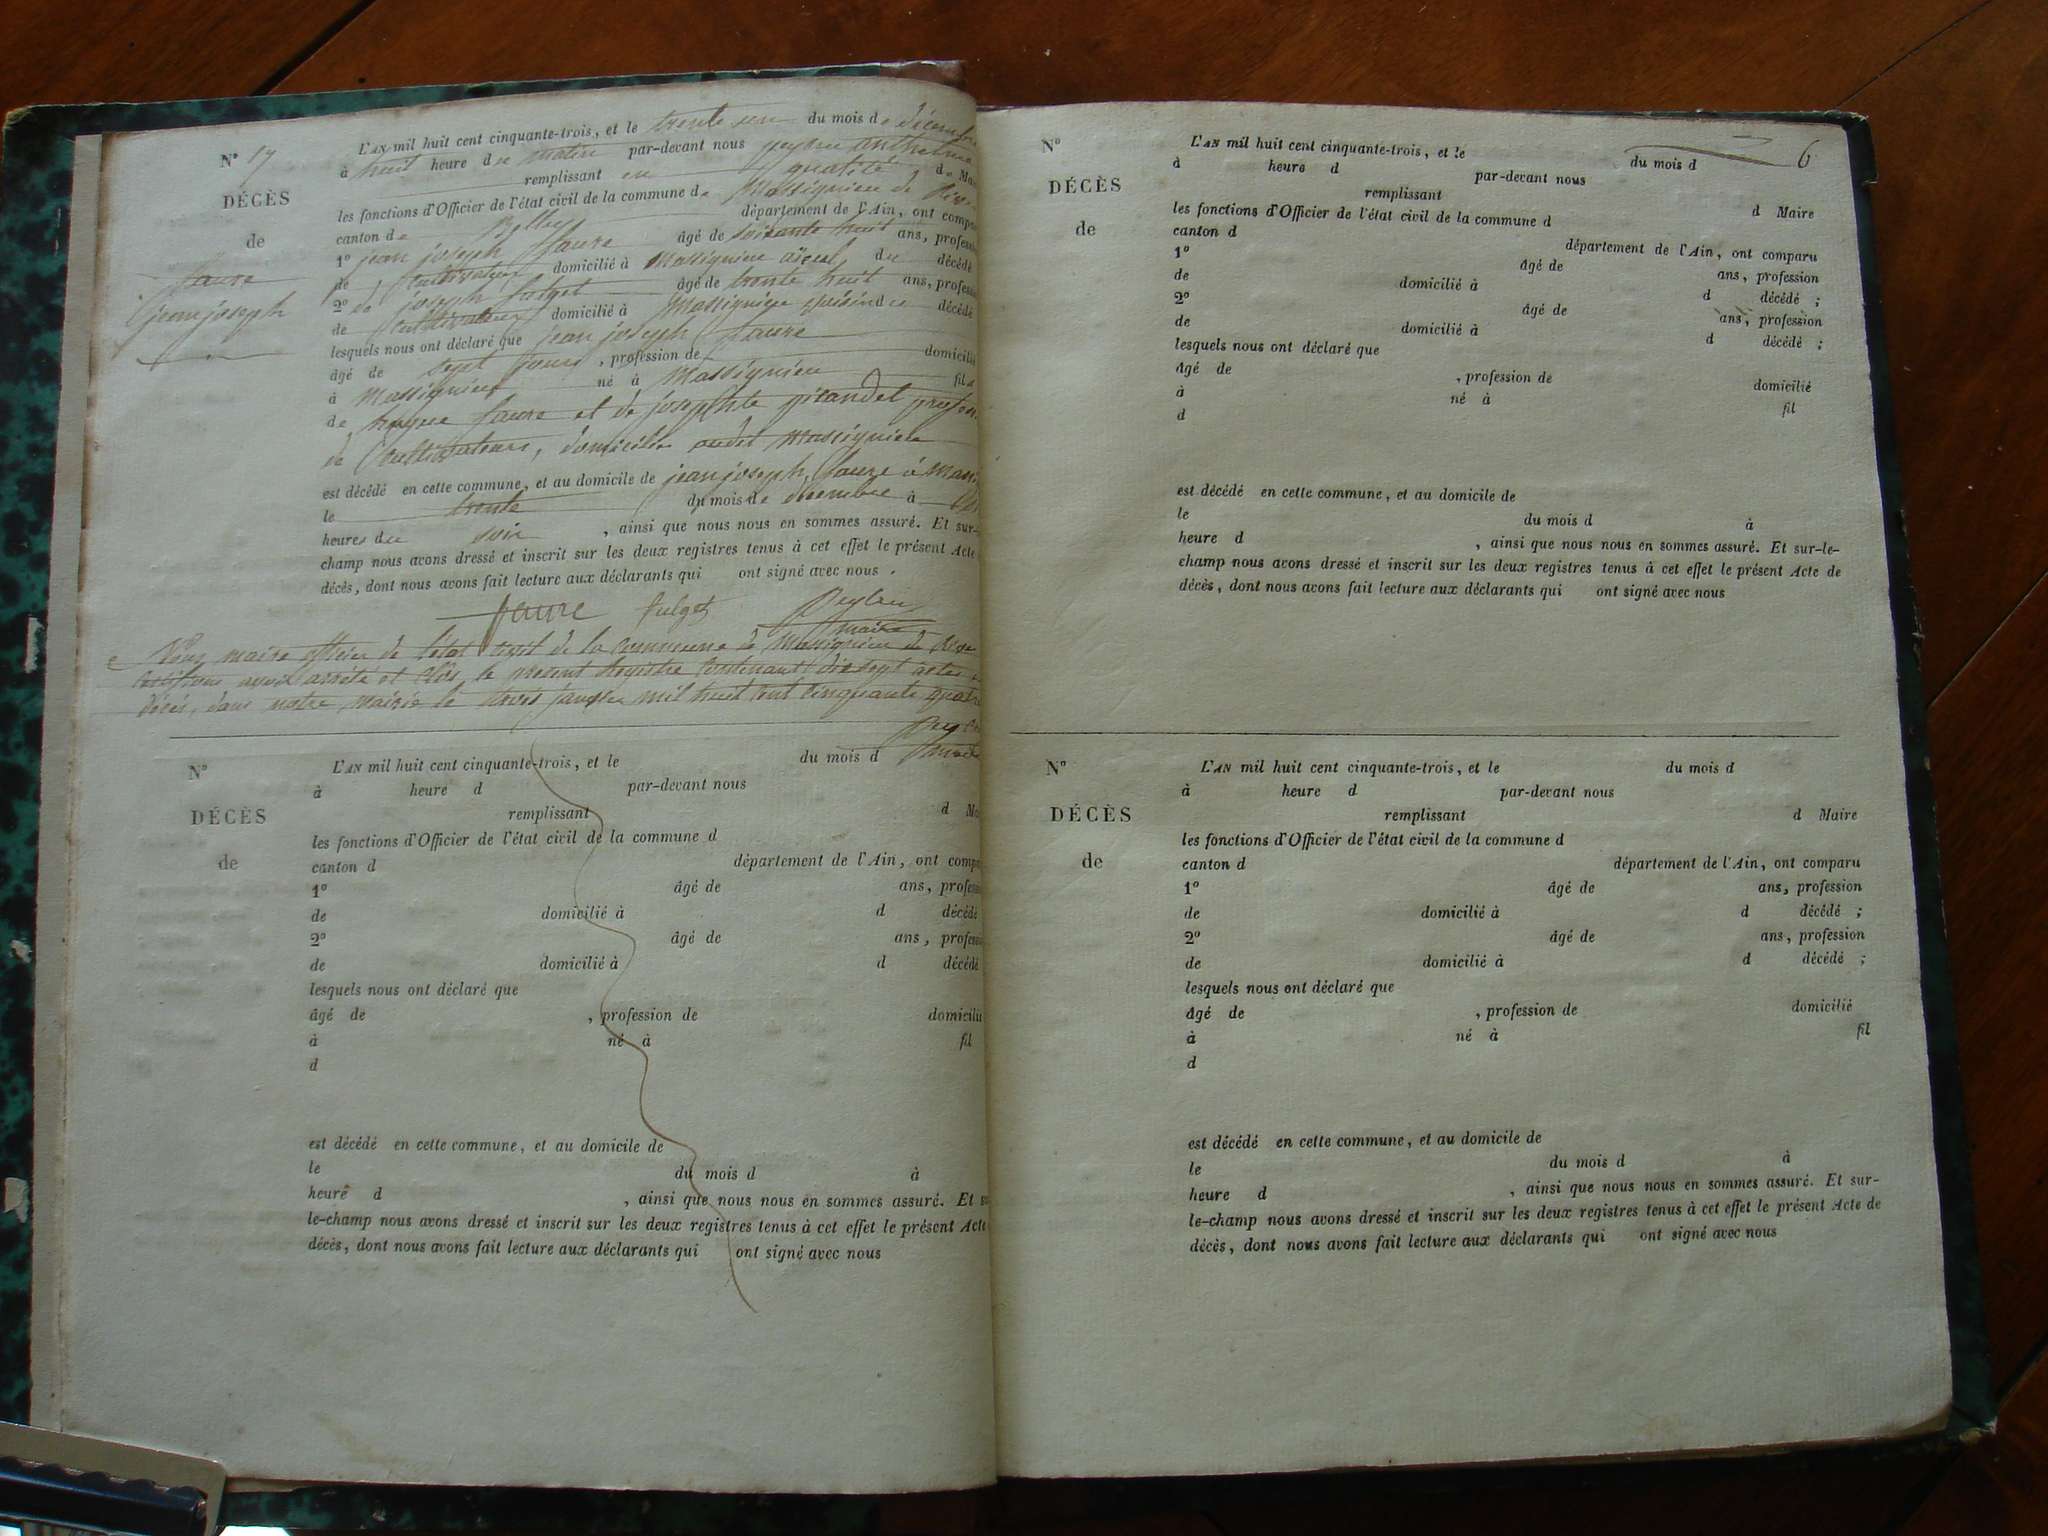 N° 17
DÉCÈS
de
faure
jean joseph
L'AN mil huit cent cinquante-trois, et le trente un du mois de décembre
à huit heure du matin par-devant nous peysson anthelme
remplissant en qualité de Ma
les fonctions d'Officier de l'état civil de la commune de Massignieu de Rive
canton de Belley département de l'Ain, ont compa
1° jean joseph faure âgé de soixante huit ans, profess
de Cultivateur domicilié à Massignieu aïeul du décédé
2° joseph fulget âgé de trente huit ans, profess
de Cultivateur domicilié à Massignieu voisin du décédé
lesquels nous ont déclaré que jean joseph faure
âgé de sept jours, profession de domicilié
à Massignieu né à Massignieu fils
de faure et de josephte profession
de Cultivateurs, domiciliés audit Massignieu
est décédé en cette commune, et au domicile de jean joseph faure à Mass
le trente du mois de décembre à
heures du soir, ainsi que nous nous en sommes assuré. Et sur-
champ nous avons dressé et inscrit sur les deux registres tenus à cet effet le présent Acte
décès, dont nous avons fait lecture aux déclarants qui ont signé avec nous.
faure fulget
maire
Nous maire officier de l'état civil de la commune de Massignieu de Rive
Certifions avoir arrêté et Clos le présent Registre Contenant dix sept actes
décès, dans notre mairie le trois janvier mil huit cent cinquante quatre
maire
N°
DÉCÈS
de
L'AN mil huit cent cinquante-trois, et le du mois d
à heure d par-devant nous
remplissant d Ma
les fonctions d'Officier de l'état civil de la commune d
canton d département de l'Ain, ont compa
1° âgé de ans, profess
de domicilié à d décédé
2° âgé de ans, profess
de domicilié à d décédé
lesquels nous ont déclaré que
âgé de , profession de domicilié
à né à fil
d
est décédé en cette commune, et au domicile de
le du mois d à
heure d , ainsi que nous nous en sommes assuré. Et s
le-champ nous avons dressé et inscrit sur les deux registres tenus à cet effet le présent Acte
décès, dont nous avons fait lecture aux déclarants qui ont signé avec nous
6
N°
DÉCÈS
de
L'AN mil huit cent cinquante-trois, et le du mois d
à heure d par-devant nous
remplissant d Maire
les fonctions d'Officier de l'état civil de la commune d
canton d département de l'Ain, ont comparu
1° âgé de ans, profession
de domicilié à d décédé ;
2° âgé de ans, profession
de domicilié à d décédé ;
lesquels nous ont déclaré que
âgé de , profession de domicilié
à né à fil
d
est décédé en cette commune, et au domicile de
le du mois d à
heure d , ainsi que nous nous en sommes assuré. Et sur-le-
champ nous avons dressé et inscrit sur les deux registres tenus à cet effet le présent Acte de
décès, dont nous avons fait lecture aux déclarants qui ont signé avec nous
N°
DÉCÈS
de
L'AN mil huit cent cinquante-trois, et le du mois d
à heure d par-devant nous
remplissant d Maire
les fonctions d'Officier de l'état civil de la commune d
canton d département de l'Ain, ont comparu
1° âgé de ans, profession
de domicilié à d décédé ;
2° âgé de ans, profession
de domicilié à d décédé ;
lesquels nous ont déclaré que
âgé de , profession de domicilié
à né à fil
d
est décédé en cette commune, et au domicile de
le du mois d à
heure d , ainsi que nous nous en sommes assuré. Et sur-
le-champ nous avons dressé et inscrit sur les deux registres tenus à cet effet le présent Acte de
décès, dont nous avons fait lecture aux déclarants qui ont signé avec nous